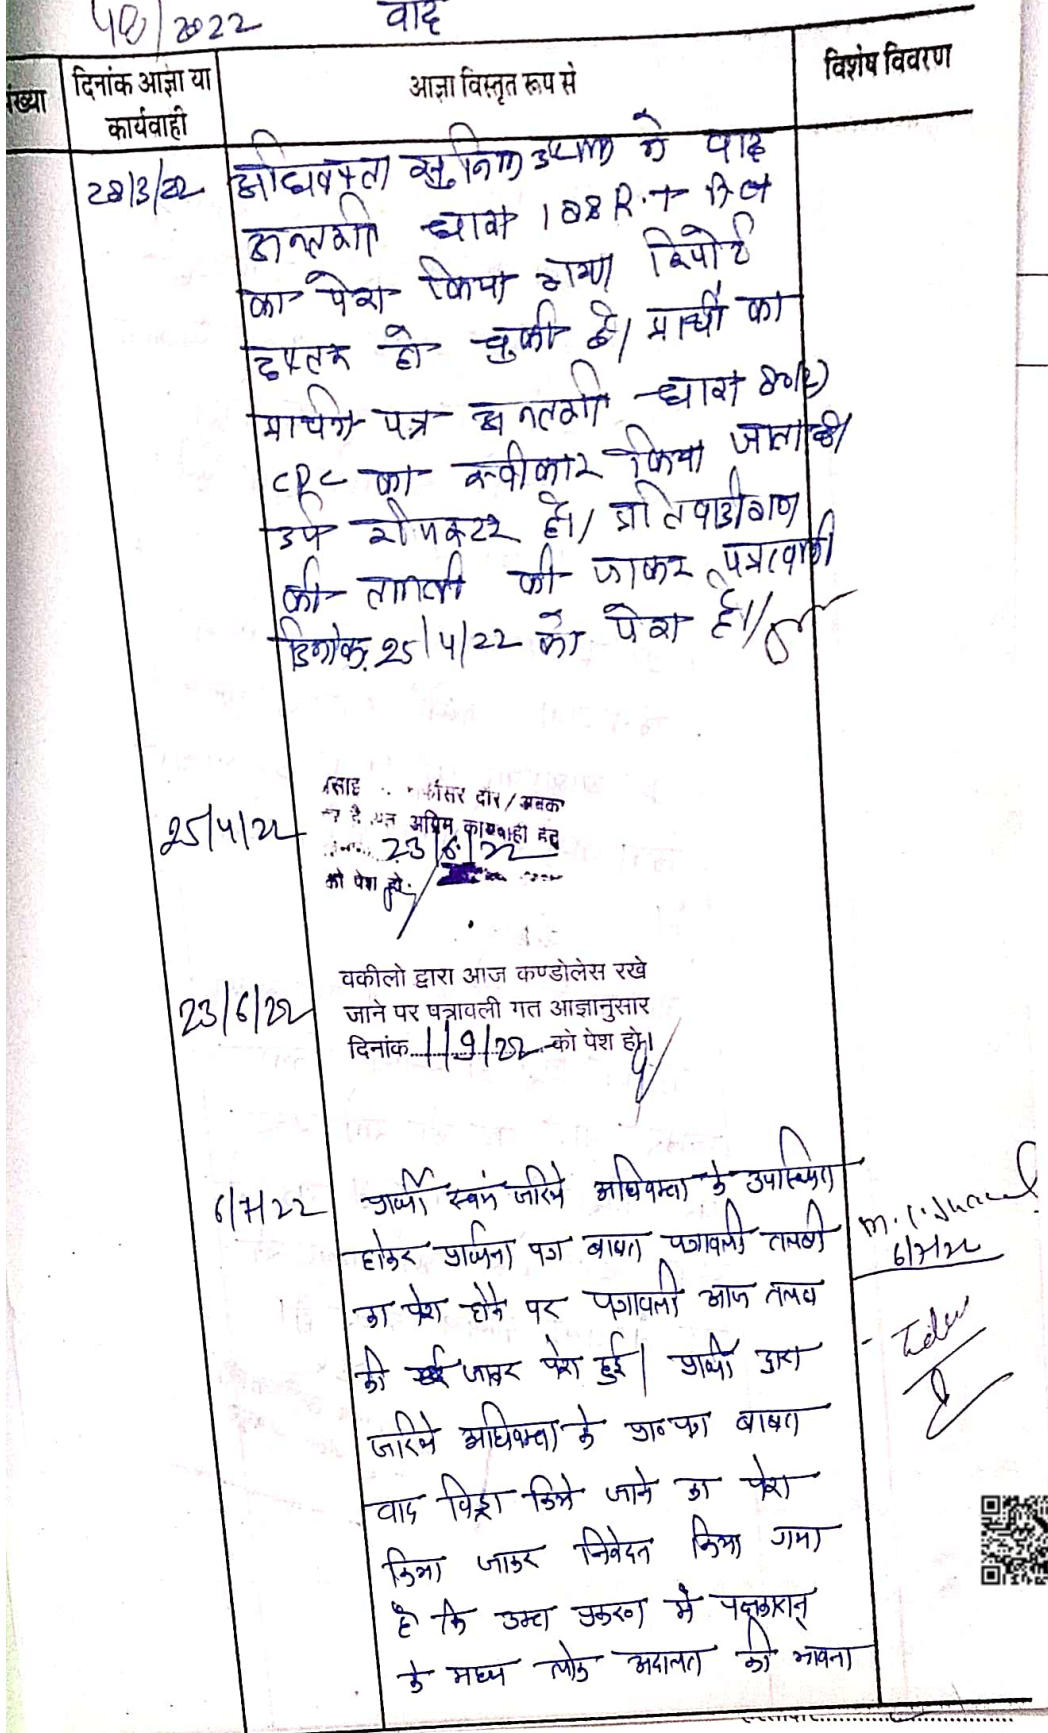 48/2022 वाद
ख्या दिनांक आज्ञा या कार्यवाही आज्ञा विस्तृत रूप से विशेष विवरण
28/3/22 अधिवक्ता सुनिल ने वाद
अन्तर्गत धारा 188 R.T
का पेश किया गया रिपोर्ट
दफ्तर हो चुकी है। प्रार्थी का
प्रार्थना पत्र अन्तर्गत धारा 80(2)
CPC का स्वीकार किया जाता है।
रजिस्टर हो। प्रतिवादीगण
की तलबी की जाकर पत्रावली
दिनांक 25/4/22 को पेश हो।
25/4/22
दौरे/अवका
है अत अग्रिम कार्यवाही हेतु
23/6/22
को पेश हो
23/6/22 वकीलो द्वारा आज कण्डोलेस रखे
जाने पर पत्रावली गत आज्ञानुसार
दिनांक 1/9/22 को पेश हो।
6/7/22 प्रार्थी स्वयं जरिये अधिवक्ता के उपस्थित
होकर प्रार्थना पत्र बाबत पत्रावली तलबी
का पेश होने पर पत्रावली आज तलब
की जाकर पेश हुई। प्रार्थी द्वारा
जरिये अधिवक्ता के प्रा० पत्र बाबत
वाद विड्रा किये जाने का पेश
किया जाकर निवेदन किया गया
है कि उक्त प्रकरण में पक्षकारान्
के मध्य लोक अदालत की भावना
6/7/22